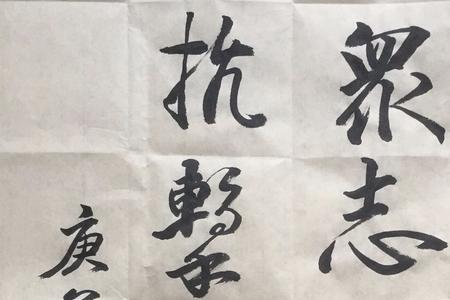 眾志
抗擊
庚